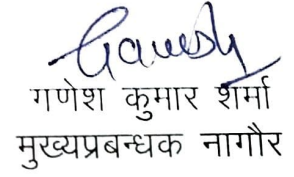 Ganesh
गणेश कुमार शर्मा
मुख्यप्रबन्धक नागौर